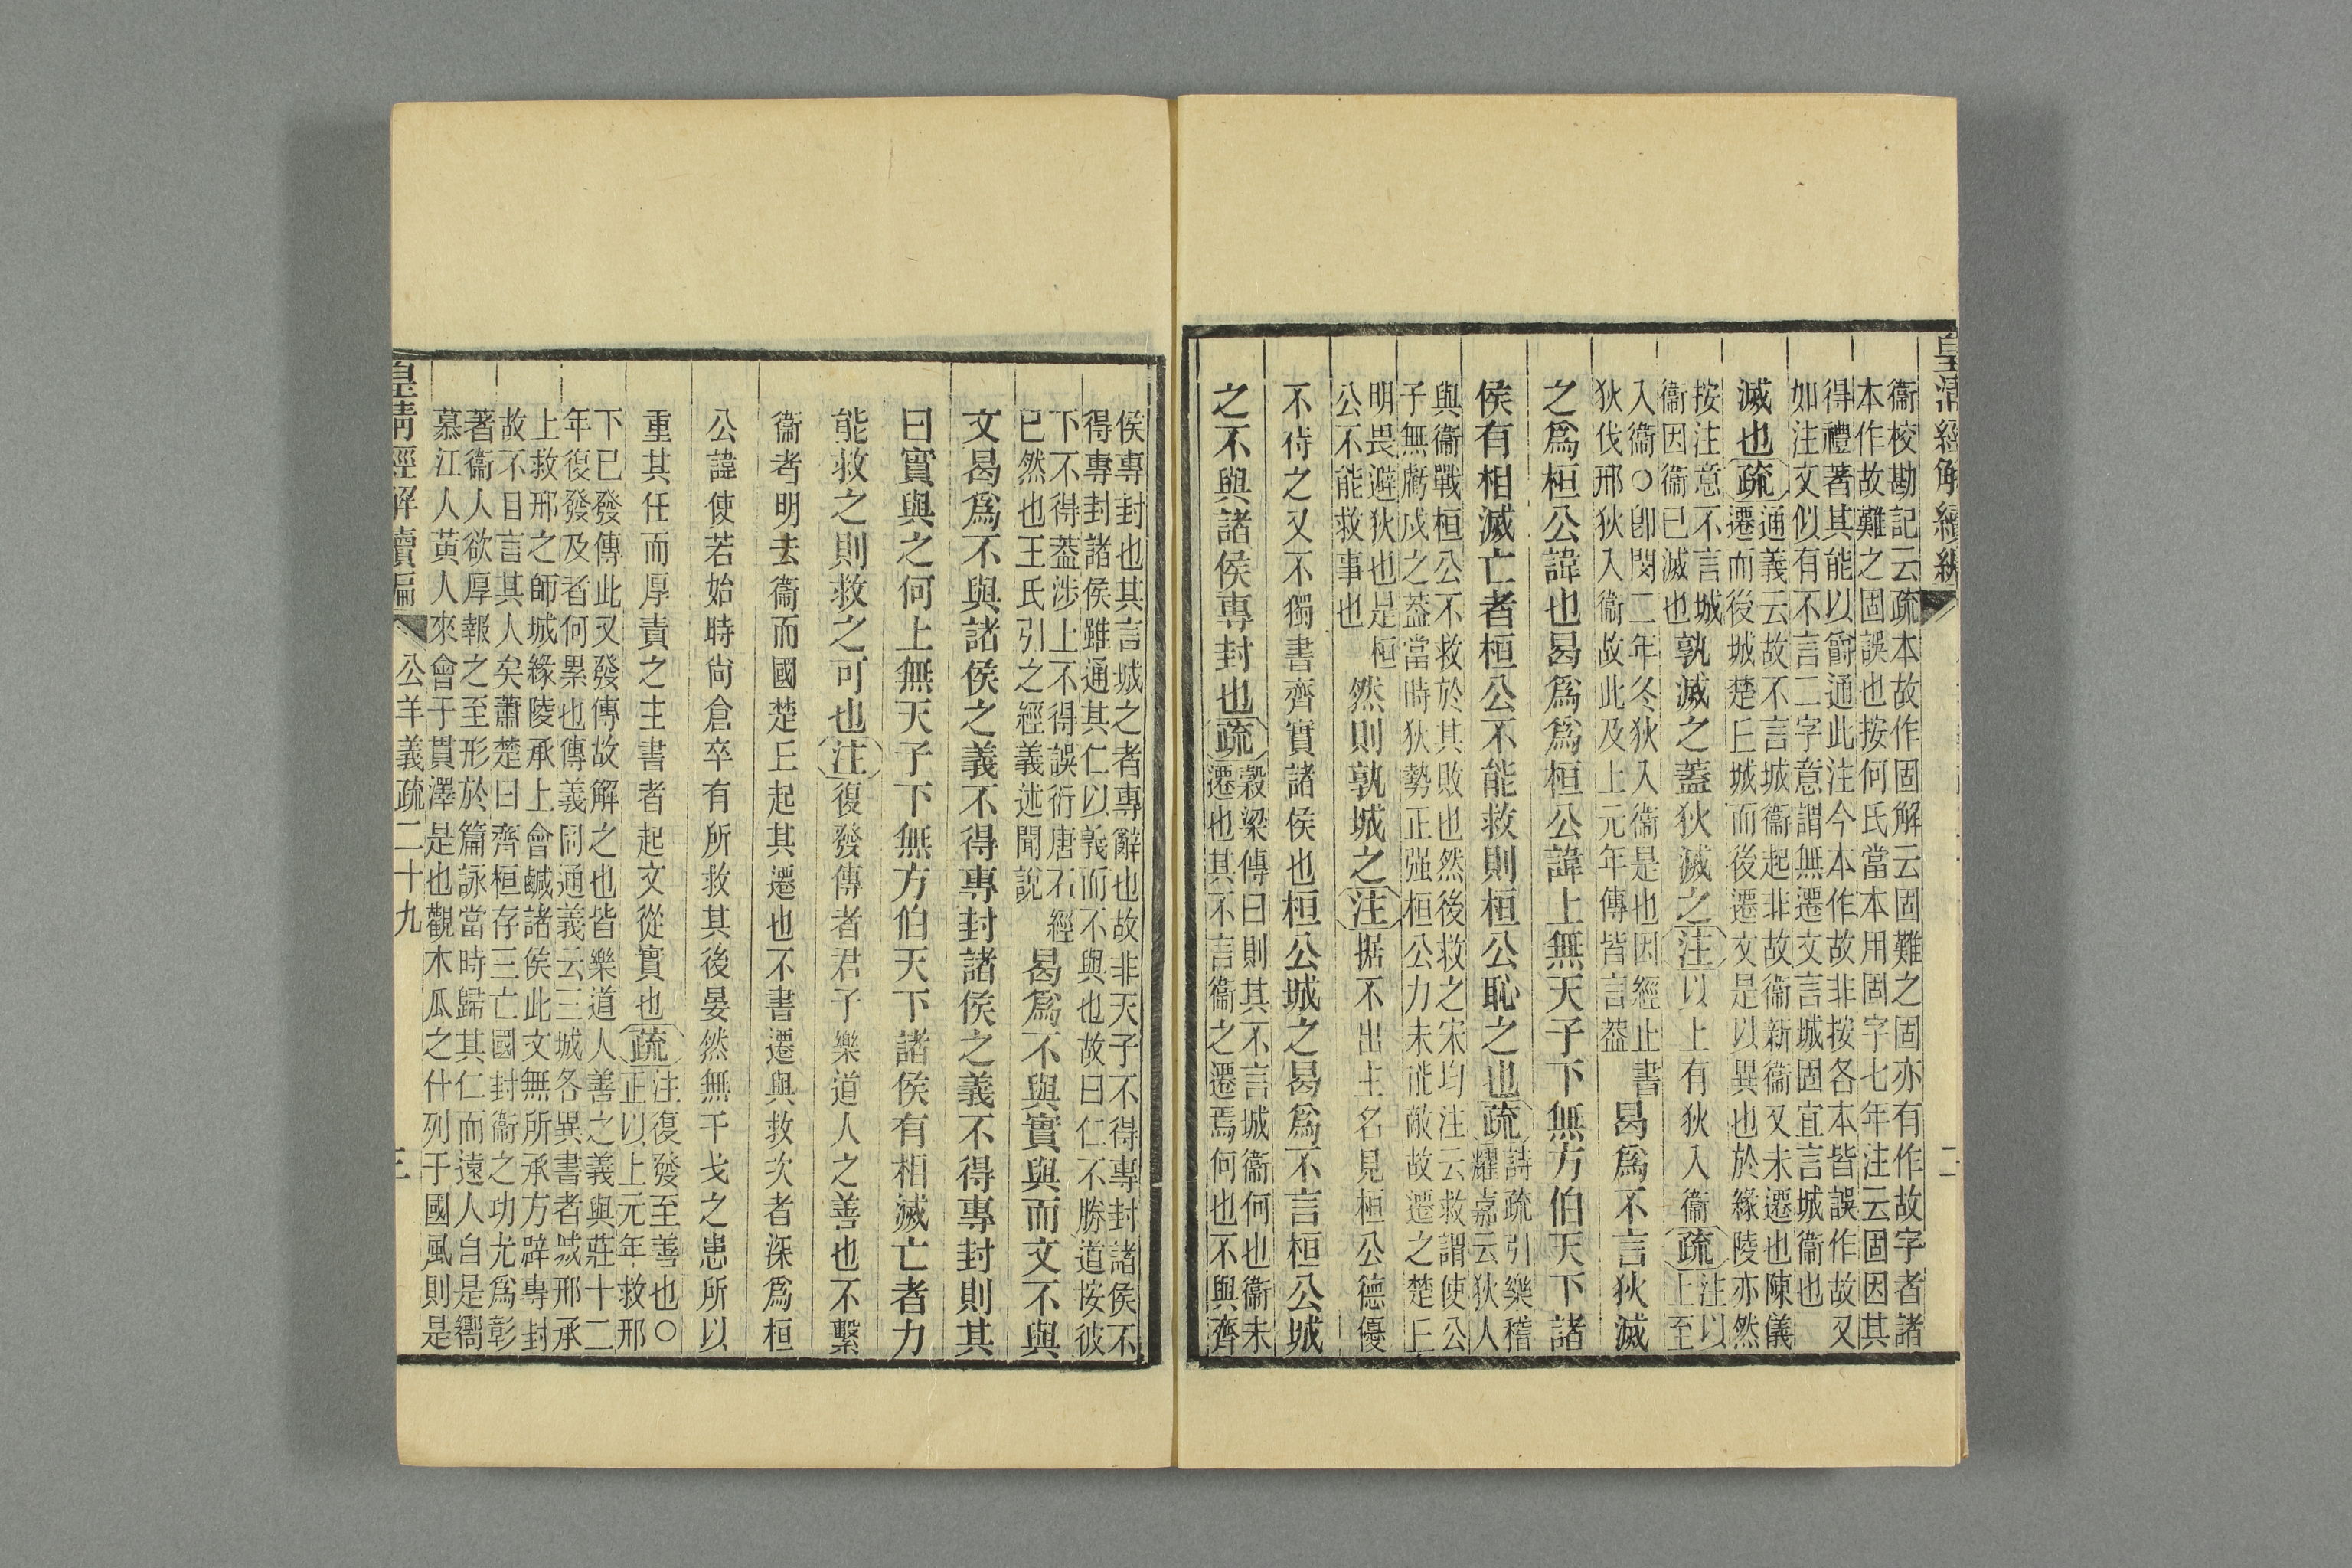 皇清經解續編
二
衞校勘記云疏本故作固解云固難之固亦有作故字者諸
本作故難之固誤也按何氏當本用固字七年注云固因其
得禮著其能以爵通此注今本作故非按各本皆誤作故又
如注文似有不言二字意謂無遷文言城固宜言城衞也
滅也疏通義云故不言城衞起非故衞新衞又未遷也陳儀
遷而後城楚丘城而後遷文是以異也於緣陵亦然
按注意不言城
衞因衞已滅也孰滅之蓋狄滅之注以上有狄入衞疏注以
上至
入衞○卽閔二年冬狄入衞是也因經止書
狄伐邢狄入衞故此及上元年傳皆言葢曷爲不言狄滅
之爲桓公諱也曷爲爲桓公諱上無天子下無方伯天下諸
侯有相滅亡者桓公不能救則桓公恥之也疏詩疏引樂稽
耀嘉云狄人
與衞戰桓公不救於其敗也然後救之宋均注云救謂使公
子無虧戍之葢當時狄勢正强桓公力未能敵故遷之楚丘
明畏避狄也是桓
公不能救事也然則孰城之注据不出主名見桓公德優
不待之又不獨書齊實諸侯也桓公城之曷爲不言桓公城
之不與諸侯專封也疏穀梁傳曰則其不言城衞何也衞未
遷也其不言衞之遷焉何也不與齊
侯專封也其言城之者專辭也故非天子不得專封諸侯不
得專封諸侯雖通其仁以義而不與也故曰仁不勝道按彼
下不得葢涉上不得誤衍唐石經
已然也王氏引之經義述聞說曷爲不與實與而文不與
文曷爲不與諸侯之義不得專封諸侯之義不得專封則其
曰實與之何上無天子下無方伯天下諸侯有相滅亡者力
能救之則救之可也注復發傳者君子樂道人之善也不繫
衞者明去衞而國楚丘起其遷也不書遷與救次者深爲桓
公諱使若始時尙倉卒有所救其後晏然無干戈之患所以
重其任而厚責之主書者起文從實也疏注復發至善也○
正以上元年救邢
下已發傳此又發傳故解之也皆樂道人善之義與莊十二
年復發及者何累也傳義同通義云三城各異書者城邢承
上救邢之師城緣陵承上會鹹諸侯此文無所承方辟專封
故不目言其人矣蕭楚曰齊桓存三亡國封衞之功尤爲彰
著衞人欲厚報之至形於篇詠當時歸其仁而遠人自是嚮
慕江人黃人來會于貫澤是也觀木瓜之什列于國風則是
皇清經解續編
公羊義疏二十九
三